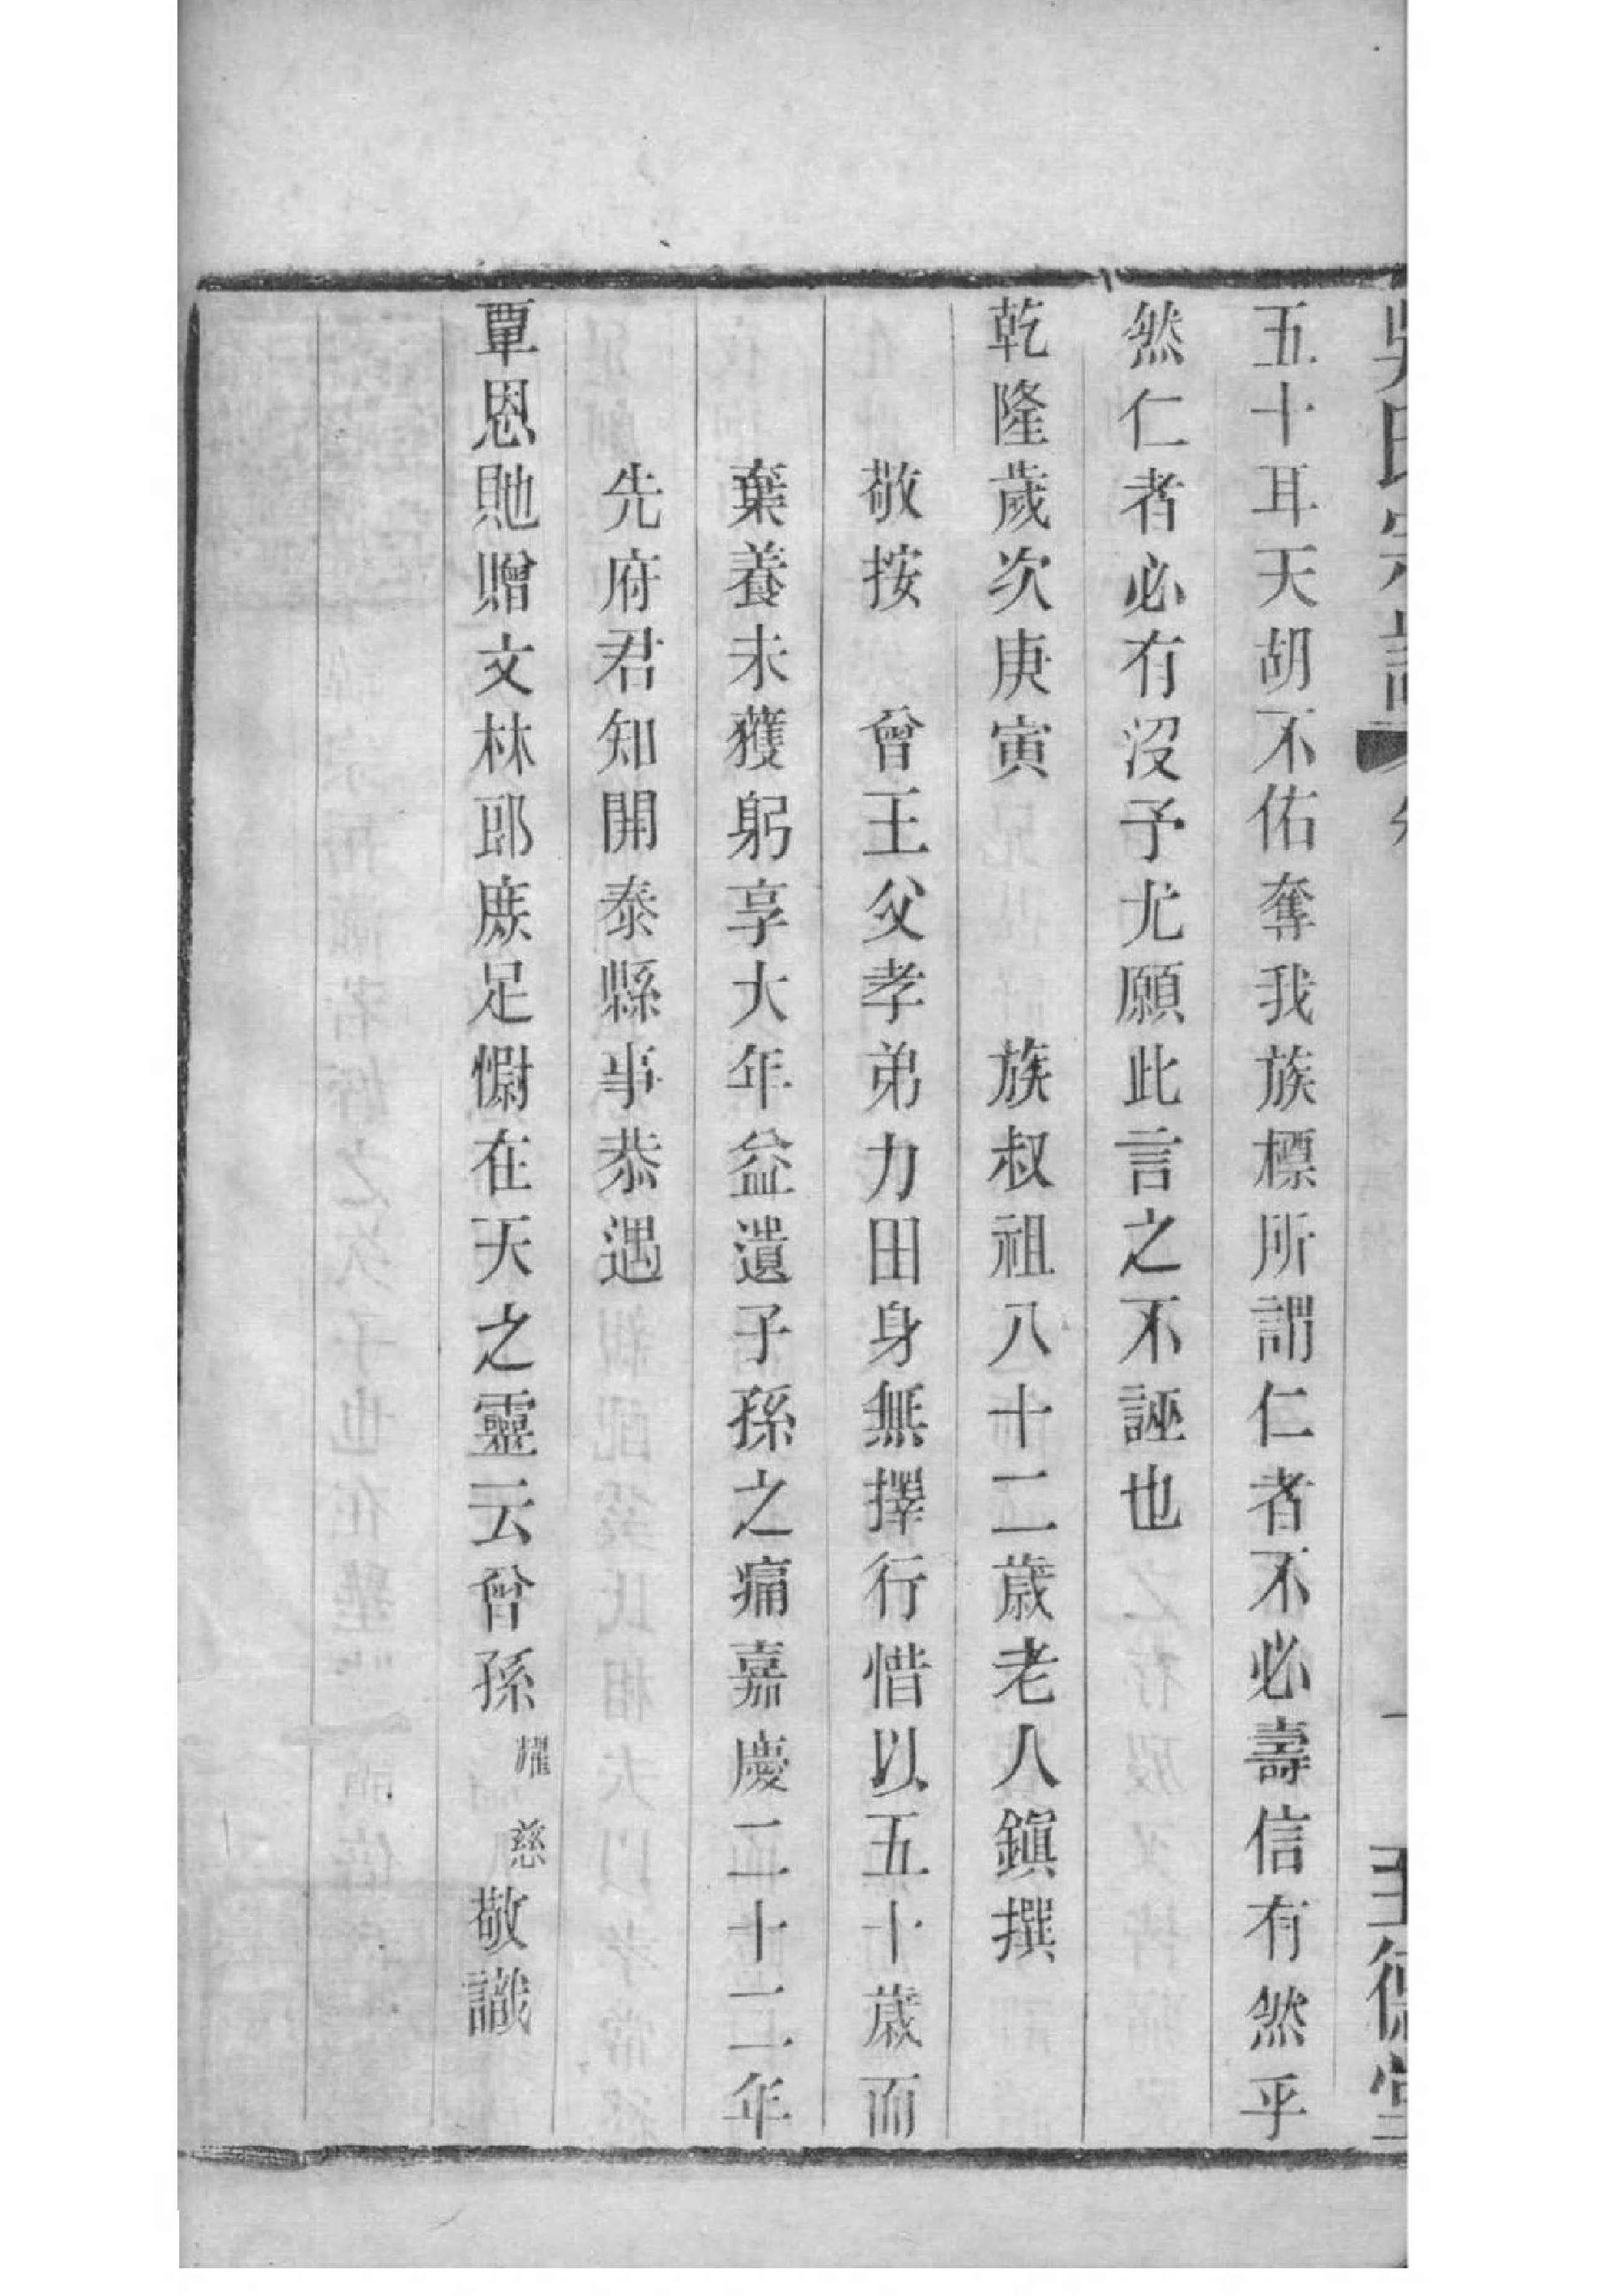 五十耳天胡不佑奪我族標所謂仁者不必壽信有然乎
然仁者必有沒予尤願此言之不誣也
乾隆歲次庚寅 族叔祖八十二歲老人鎮撰
敬按 曾王父孝弟力田身無擇行惜以五十歲而
棄養未獲躬享大年益遺子孫之痛嘉慶二十二年
先府君知開泰縣事恭遇
覃恩貤贈文林郎庶足慰在天之靈云曾孫耀慈敬識